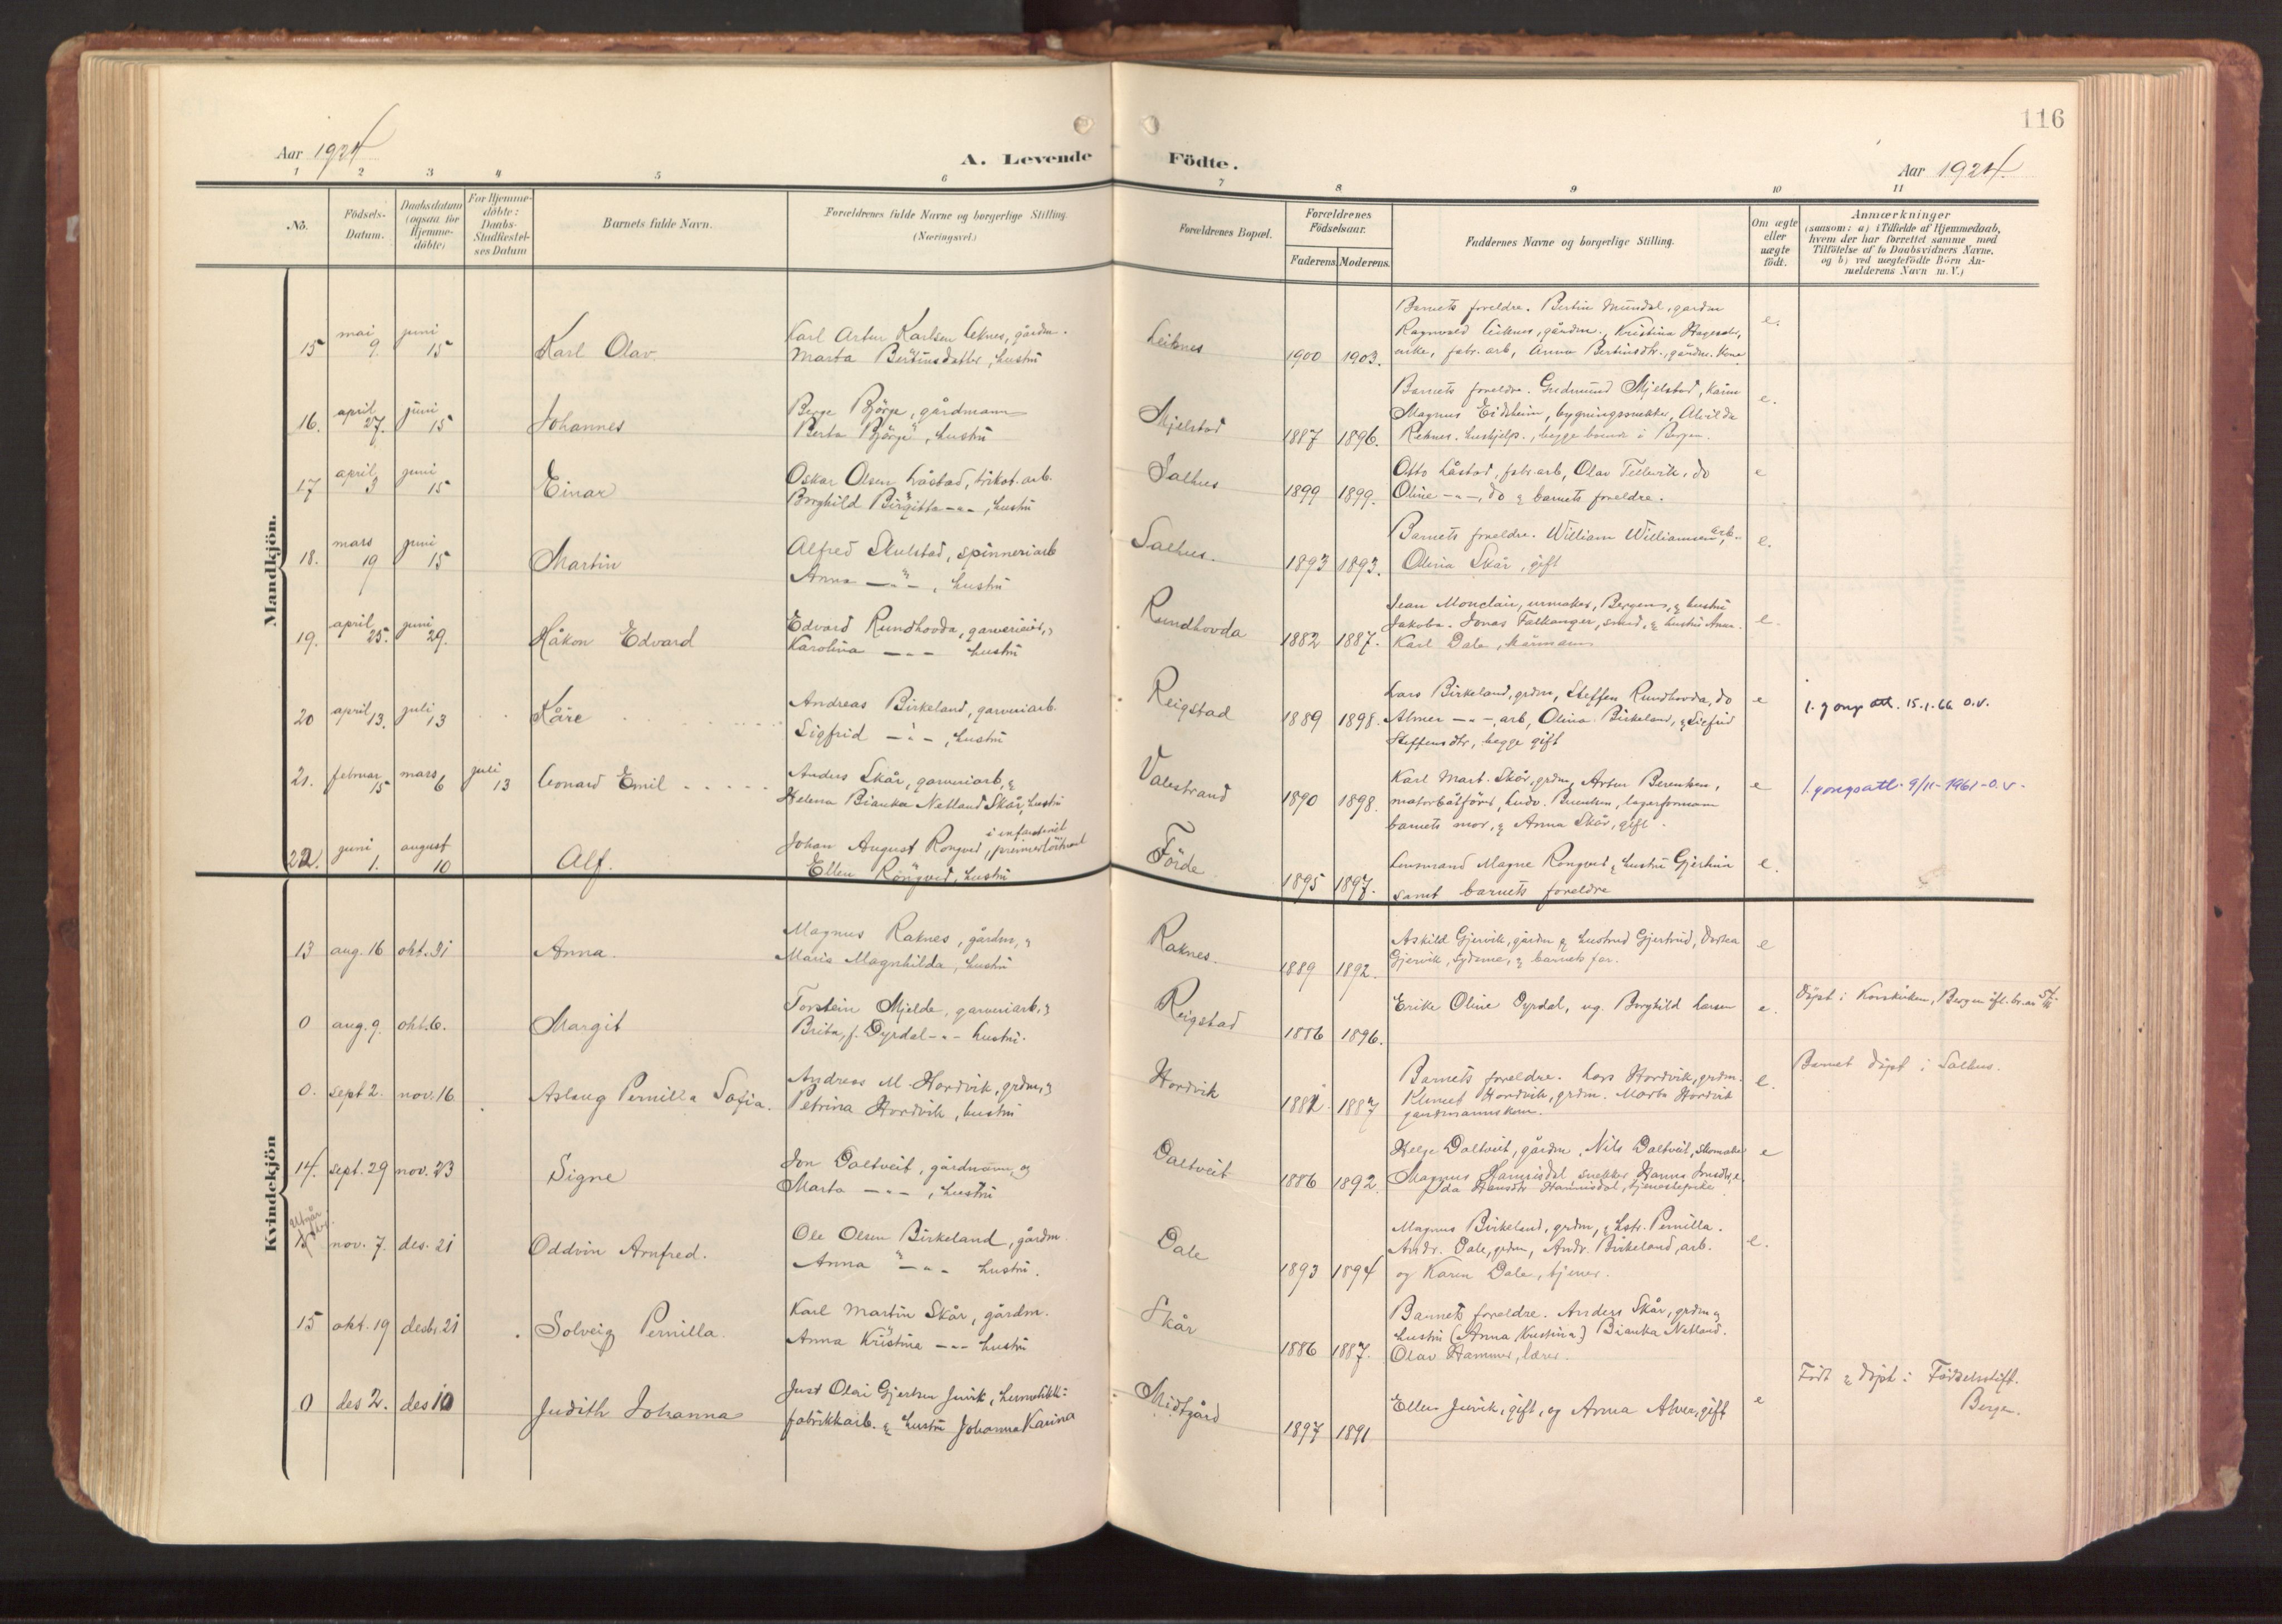 116
Aar 1924
A. Levende Födte.
Aar 1924.
1 2 3 4 5 6 7 8 9 10 11
No.
Födsels-Datum.
Daabsdatum (ogsaa for Hjemme-döbte)
For Hjemme-döbte: Daabs-Stadfæstel-ses Datum
Barnets fulde Navn.
Forældrenes fulde Navne og borgerlige Stilling. (Næringsvei)
Forældrenes Bopæl.
Forældrenes Födselsaar.
Faderens. Moderens.
Faddernes Navne og borgerlige Stilling.
Om ægte eller uægte födt.
Anmærkninger
(saasom: a) i Tilfælde af Hjemmedaab, hvem der har forrettet samme med Tilföielse af to Daabsvidners Navne. og b) ved uægtefödte Börn An-melderens Navn m. V.)
Mandkjön.
15 mai 9. juni 15 Karl Olav.
Karl Artur Karlsen Leknes, gårdm.
Marta Bertinsdatter, hustru
Leiknes 1900 1903.
Barnets foreldre. Bertin Mundal, gardm
Ragnvald Leiknes, gårdm., Kristina
enke, fabr. arb, Anna Bertinsdtr., gårdm. kone
e.
16. april 27. juni 15 Johannes
Berge Björge, gårdmann
Berta Björge, hustru
Mjelstad 1887 1896.
Barnets foreldre. Gudmund Mjelstad,
Magnus Eidsheim, bygningssnekker, Alvilda
Reknes. hushjelp., begge i Bergen.
e.
17 april 3 juni 15 Einar
Oskar Olsen Låstad, trikot. arb.
Borghild Birgitta -"-, hustru
Salhus 1899 1899.
Otto Låstad, fabr arb, Olav Tellevik, do
Oline -"-, do & barnets foreldre.
e
18. mars 19 juni 15 Martin
Alfred Skulstad, spinneriarb
Anna -"-, hustru
Salhus. 1893 1893.
Barnets foreldre. William Williamsen arb.
Olina Skår, gift
e.
19. april 25. juni 29. Håkon Edvard
Edvard Rundhovda, garverieier, &
Karolina -"- hustru
Rundhovda 1882 1887.
Jean Monclair, urmaker, Bergen, & hustru
Jakoba. Jonas Falkanger, smed, & hustru Anna.
Karl Dale,
e.
20 april 13. juli 13 Kåre
Andreas Birkeland, garveriarb.
Sigfrid -"-, hustru
Reigstad 1889 1898.
Lars Birkeland, grdm, Steffen Rundhovda, do
Almer -"-, arb, Olina Birkeland, & Sigfrid
Steffensdtr, begge gift
e
1. gong att. 15.1.66 O.V.
21. februar 15 mars 6 juli 13 Leonard Emil
Anders Skår, garveriarb, &
Helena Bianka Netland Skår, hustru
Valestrand 1890 1898.
Karl Mart. Skår, grdm, Artur Berentsen,
motorbåtförer, Ludv. Berentsen, lagerformann
barnets mor, & Anna Skår, gift.
e
1. gongs att. 9/11-1961-O.V.
22. juni 1. august 10 Alf.
Johan August Rongved, premierlöitnant i infanteriet
Ellen Rongved, hustru
Förde 1895 1897.
Lensmand Magne Rongved & hustru Gjertina
samt barnets foreldre
e.
Kvindekjön
13 aug. 16 okt. 31 Anna.
Magnus Raknes, gårdm, &
Maria Magnhilda, hustru
Raknes. 1889 1892.
Askild Gjervik, gårdm & hustrud Gjertrud, Dortea
Gjervik, syerske, & barnets far.
e
0 aug. 9. okt. 6. Margit
Torstein Mjelde, garveriarb, &
Brita, f. Dyrdal -"- hustru.
Reigstad 1886 1896.
Erika Oline Dyrdal, ug. Borghild Larsen
e.
Döpt i Korskirken, Bergen ifl. br. av
0. sept 2. nov. 16 Aslaug Pernilla Sofia.
Andreas M. Hordvik, grdm, &
Petrina Hordvik, hustru
Hordvik 1881 1887
Barnets foreldre. Lars Hordvik, grdm.
Klemet Hordvik, grdm. Marta Hordvik
e.
Barnet döpt i Salhus.
14. sept. 29 nov. 23 Signe
Jon Daltveit, gårdmann, og
Marta -"-, hustru
Daltveit 1886 1892.
Helge Daltveit, gårdm, Nils Daltveit, skomaker
Magnus Hannisdal, snekker, Hanna Jonsdtr, e
Ida Hansdtr Hannisdal, tjenestepike
e
Utgår
15 nov. 7. des. 21 Oddvin Arnfred.
Ole Olsen Birkeland, gårdm.
Anna -"- hustru.
Dale 1893 1894
Magnus Birkeland, grdm, & hstr. Pernilla.
Andr. Dale, grdm, Andr. Birkeland, arb.
og Karen Dale, tjener.
e.
15 okt. 19 desbr. 21 Solveig Pernilla.
Karl Martin Skår, gårdm.
Anna Kristina -"- hustru
Skår 1886 1887.
Barnets foreldre. Anders Skår, grdm &
hustru (Anna Kristina) Bianka Netland.
Olav Hammer, lærer.
0 des 2. des 10 Judith Johanna
Just Olai Gjertsen Juvik, hermetikk-
fabrikkarb. & hustru Johanna Karina
Midtgård 1897 1891
Ellen Juvik, gift, og Anna Alver, gift
e
Födt & döpt i Födselsstift.
Bergen.